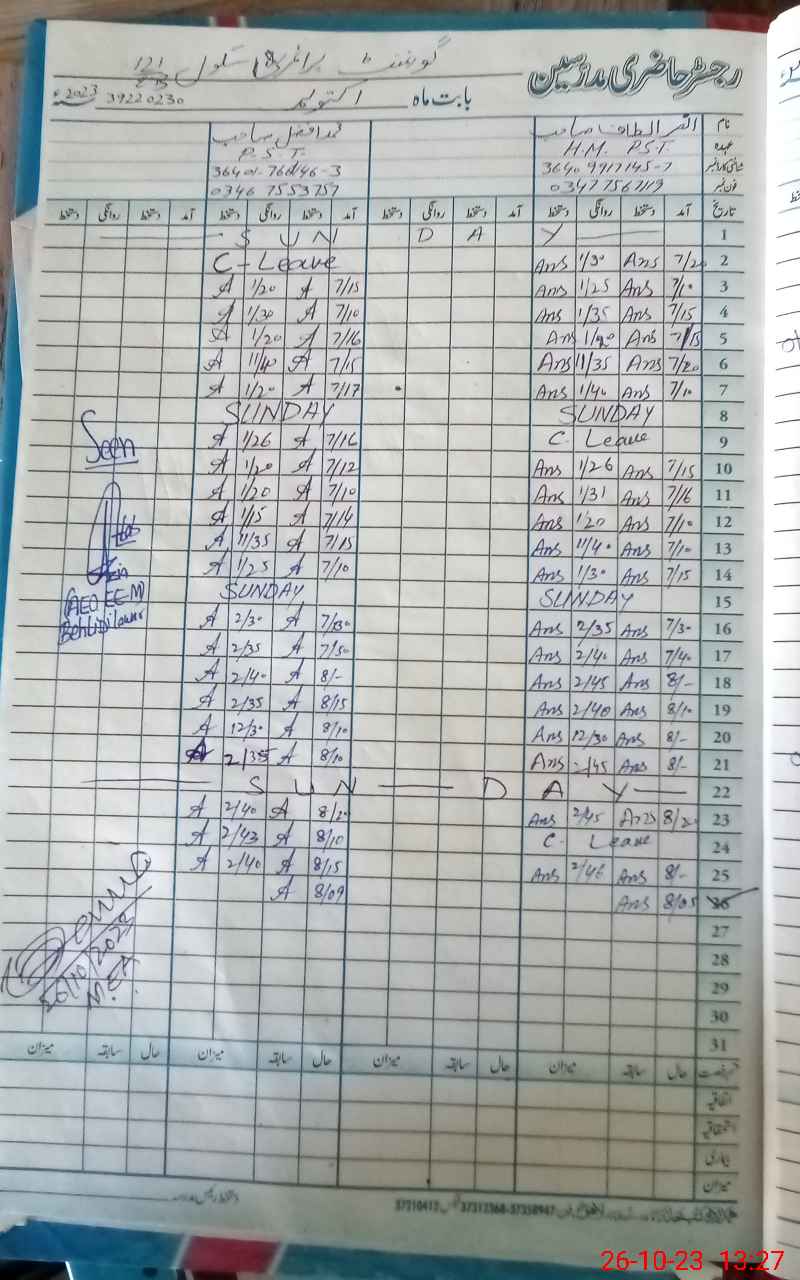 رجسٹر حاضری مدرسین
گورنمنٹ پرائمری سکول 121
بابت ماہ اکتوبر 2023ء 39220230
نام الطاف صاحب محمد افضل صاحب
عہدہ H.M. P.S.T. P.S.T.
شناختی کارڈ نمبر
فون نمبر 03477567119 0346 7553757
تاریخ آمد دستخط روانگی دستخط آمد دستخط روانگی دستخط آمد دستخط روانگی دستخط آمد دستخط روانگی دستخط
1 S U N D A Y
2 Ans 1/30 Ans 7/20 C-Leave
3 Ans 1/25 Ans 7/10 A 1/20 A 7/15
4 Ans 1/35 Ans 7/15 A 1/30 A 7/10
5 Ans Ans 7/15 A 1/20 A 7/16
6 Ans 11/35 Ans 7/20 A 11/40 A 7/15
7 Ans 1/40 Ans 7/10 A 1/20 A 7/17
8 SUNDAY SUNDAY
9 C. Leave A 1/26 A 7/16
10 Ans 1/26 Ans 7/15 A 1/20 A 7/12
11 Ans 1/31 Ans 7/16 A 1/20 A 7/10
12 Ans 1/20 Ans 7/10 A 1/15 A 7/14
13 Ans 11/40 Ans 7/10 A 11/35 A 7/15
14 Ans 1/30 Ans 7/15 A 1/25 A 7/10
15 SUNDAY SUNDAY
16 Ans 2/35 Ans 7/30 A 2/30 A 7/30
17 Ans 2/40 Ans 7/40 A 2/35 A 7/50
18 Ans 2/45 Ans 8/- A 2/40 A 8/-
19 Ans 2/40 Ans 8/10 A 2/35 A 8/15
20 Ans 12/30 Ans 8/- A 12/30 A 8/10
21 Ans 2/45 Ans 8/- A 2/35 A 8/10
22 S U N D A Y
23 Ans 2/45 Ans 8/20 A 2/40 A 8/20
24 C. Leave A 2/43 A 8/10
25 Ans 2/46 Ans 8/- A 2/40 A 8/15
26 Ans 8/05 A 8/09
27
28
29
30
31
Seen
(AEO EE-M)
26/10/2023
M.EA
حال سابقہ میزان حال سابقہ میزان حال سابقہ میزان حال سابقہ میزان
اتفاقیہ
استحقاقیہ
بیماری
میزان
26-10-23 13:27